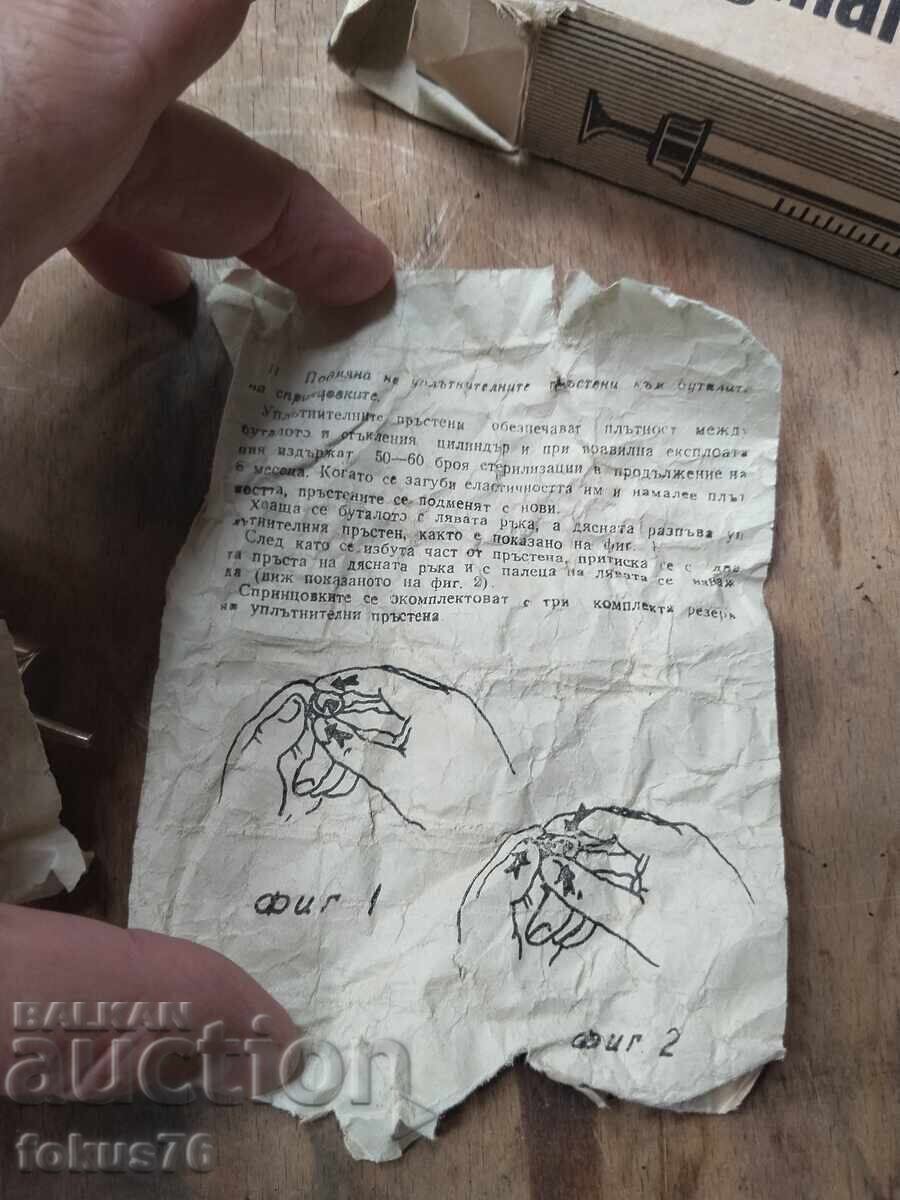 gmar
Подмяна на уплътнителните пръстени към буталита
на спринцовките.
Уплътнителните пръстени обезпечават плътност между
буталото и стъкления цилиндър и при правилна експлоата
ния издържат 50—60 броя стерилизации в продължение на
6 месеца. Когато се загуби еластичността им и намалее плът
ността, пръстените се подменят с нови.
Хваща се буталото с лявата ръка, а дясната разпъва уп
лътнителния пръстен, както е показано на фиг. 1
След като се избута част от пръстена, притиска се с два
та пръста на дясната ръка и с палеца на лявата се изваж
да (виж показаното на фиг. 2).
Спринцовките се окомплектоват с три комплекта резерв
ни уплътнителни пръстена
фиг 1
фиг 2
BALKAN
auction
fokus76